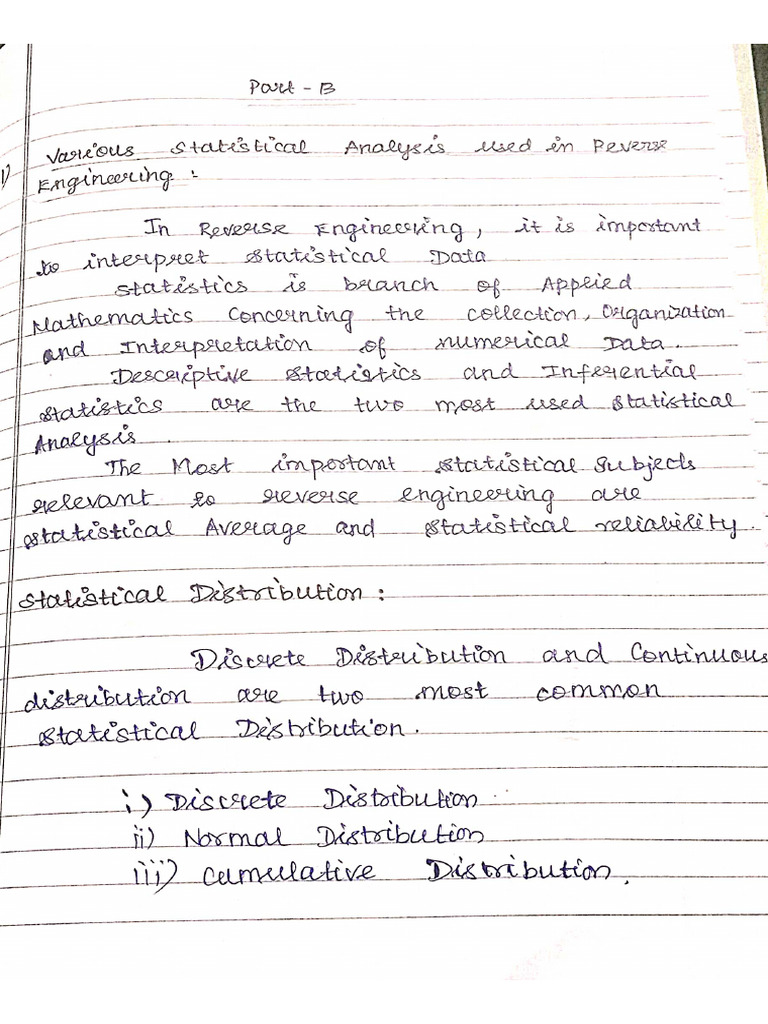 Part - B
1) Various Statistical Analysis used in Reverse
Engineering :
In Reverse Engineering, it is important
to interpret statistical Data
statistics is branch of Applied
Mathematics Concerning the collection, Organization
and Interpretation of numerical Data.
Descriptive statistics and Inferential
statistics are the two most used statistical
Analysis.
The Most important statistical subjects
relevant to reverse engineering are
statistical Average and statistical reliability.
Statistical Distribution :
Discrete Distribution and Continuous
distribution are two most common
statistical Distribution.
i) Discrete Distribution
ii) Normal Distribution
iii) Cumulative Distribution.